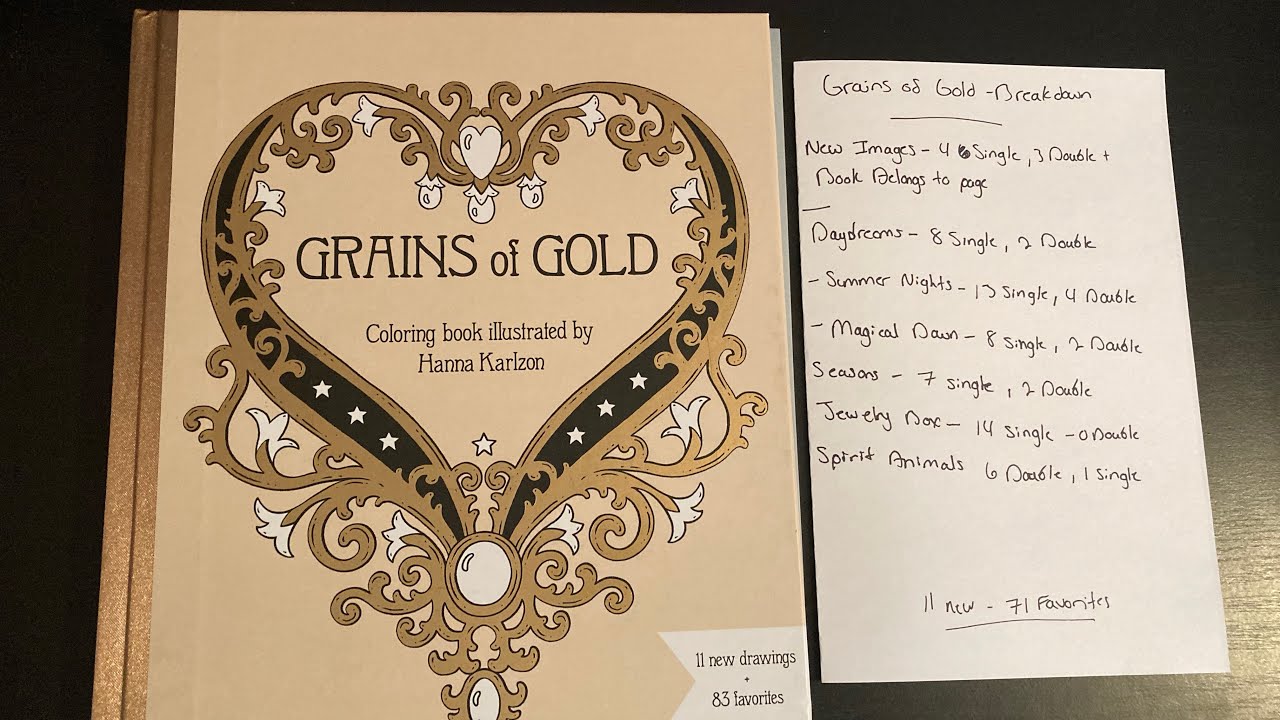 GRAINS of GOLD
Coloring book illustrated by
Hanna Karlzon
11 new drawings
+
83 favorites
Grains of Gold - Breakdown
New Images - 4 6 Single, 3 Double +
Book Belongs to page
Daydreams - 8 Single, 2 Double
- Summer Nights - 13 Single, 4 Double
- Magical Dawn - 8 Single, 2 Double
Seasons - 7 single, 2 Double
Jewelry Box - 14 Single - 0 Double
Spirit Animals 6 Double, 1 Single
11 new - 71 Favorites